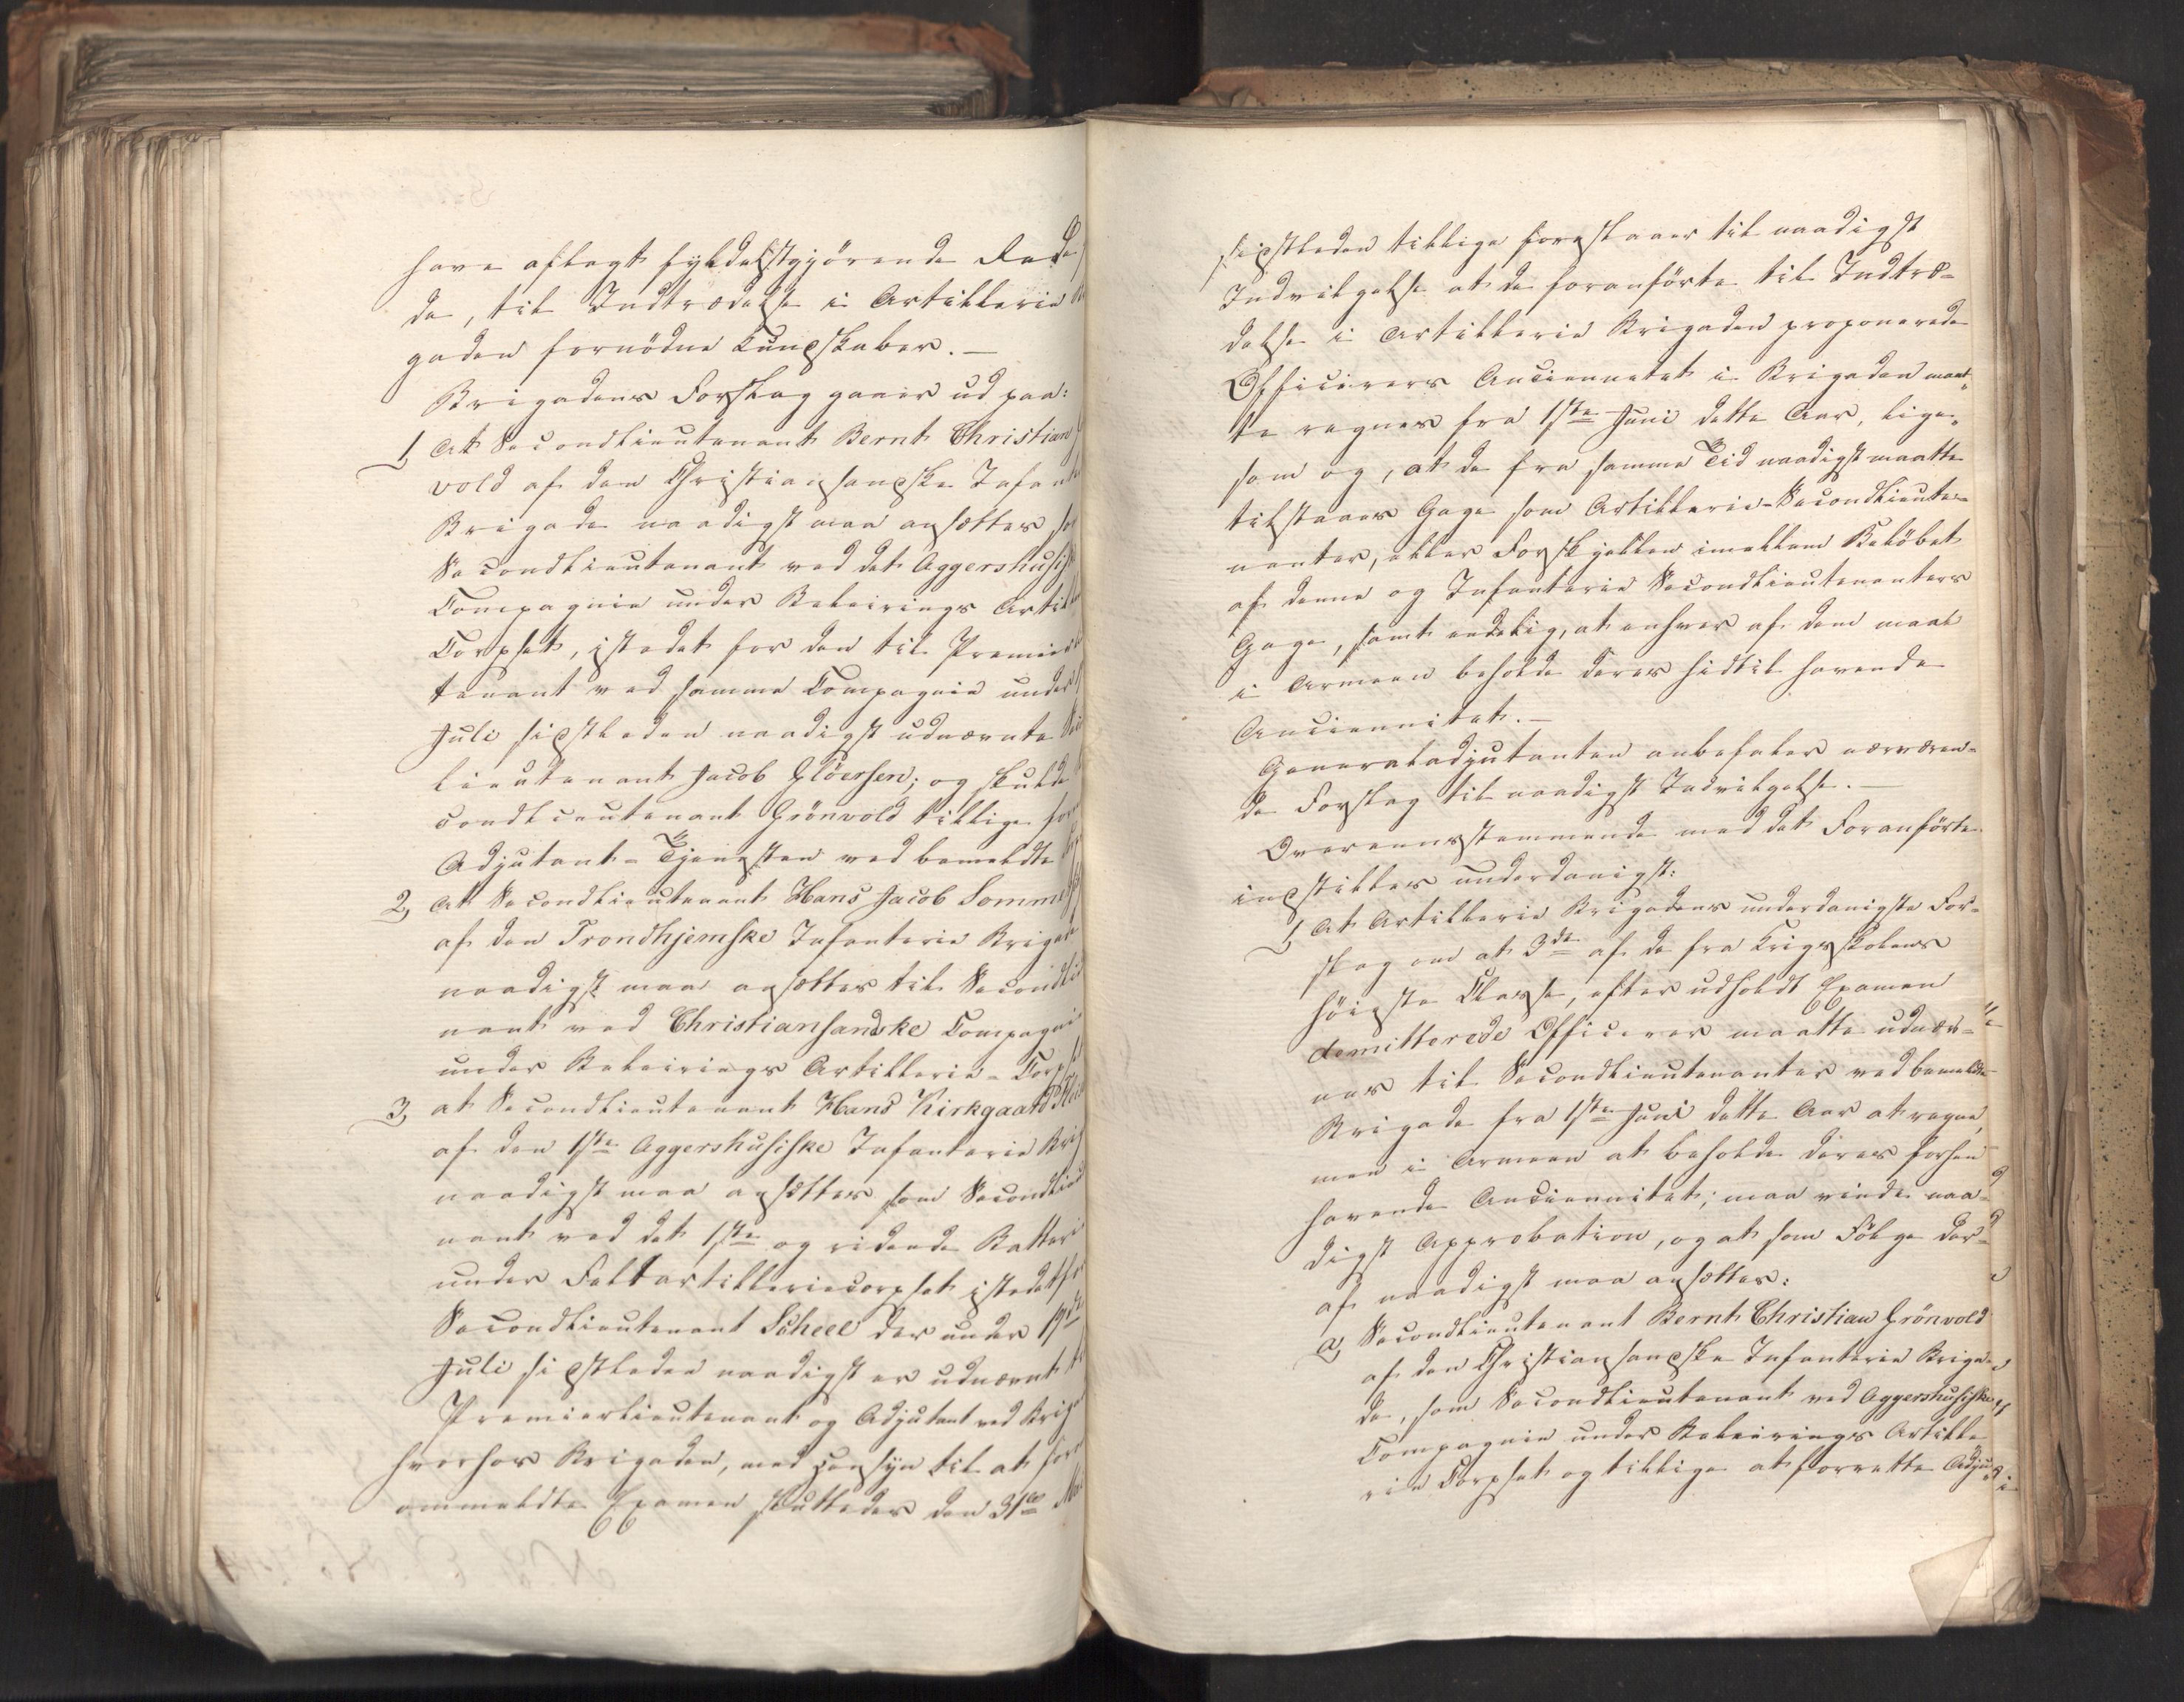 have aflagt fyldestgjörende
de, til Indtrædelse i Artillerie
gaden fornödne Kundskaber. —
Brigadens Forslag gaaer ud paa:
1, At Secondlieutenant Bernt Christian
vold af den Christiansandske Infante
Brigade naadigst maa ansættes so
Secondlieutenant ved det Aggershusisk
Compagnie under Beleirings Artil
Corpset, istedet for den til Premier
tenant ved samme Compagnie under
Juli sidstleden naadigst udnævnte
lieutenant Jacob Glöersen; og skulde
condlieutenant Grönvold tillige for
Adjutant-Tjenesten ved bemeldte
2, At Secondlieutenant Hans Jacob
af den Trondhjemske Infanterie Brigade
naadigst maa ansættes til Secondlie
nant ved Christiansandske Compagni
under Beleirings Artillerie-Corps
3, at Secondlieutenant Hans Kirkgaard
af den 1ste Aggershusiske Infanterie Brig
naadigst maa ansættes som Secondlieu
nant ved det 1ste og ridende Batteri
under Feltartilleriecorpset istedetfor
Secondlieutenant Scheel der under 19de
Juli sidstleden naadigst er udnævnt
Premierlieutenant og Adjutant ved Briga
hvorhos Brigaden, med Hensyn til at for
ommeldte Examen sluttedes den 31te Mai
sidstleden tillige foreslaaer til naadigst
Indvilgelse at de foranförte til Indtræ-
delse i Artillerie Brigaden proponerede
Officierers Anciennetet i Brigaden maat-
te regnes fra 1ste Juni dette Aar, lige-
som og, at de fra samme Tid naadigst maatte
tilstaaes Gage som Artillerie-Secondlieute-
nanter, eller Forskjellen imellem Belöbet
af denne og Infanterie Secondlieutenanters
Gage, samt endelig, at enhver af dem maae
i Armeen beholde deres hidtil havende
Anciennitet. —
Generaladjutanten anbefaler nærværen-
de Forslag til naadigst Indvilgelse. —
Overeensstemmende med det Foranförte
indstilles underdanigst:
1, At Artillerie Brigadens underdanigste For-
slag om at 3de af de fra Krigsskolens
höieste Classe, efter udholdt Examen
demitterede Officerer maatte udnæv-
nes til Secondlieutenanter ved bemeldte
Brigade fra 1ste Juni dette Aar at regne,
men i Armeen at beholde deres forhen
havende Anciennitet; maa vinde naa-
digst Approbation, og at som Fölge der-
af naadigst maa ansættes:
a, Secondlieutenant Bernt Christian Grönvold
af den Christiansandske Infanterie Briga-
de, som Secondlieutenant ved Aggershusiske
Compagnie under Beleirings Artille-
rie Corpset og tillige at forrette Adju